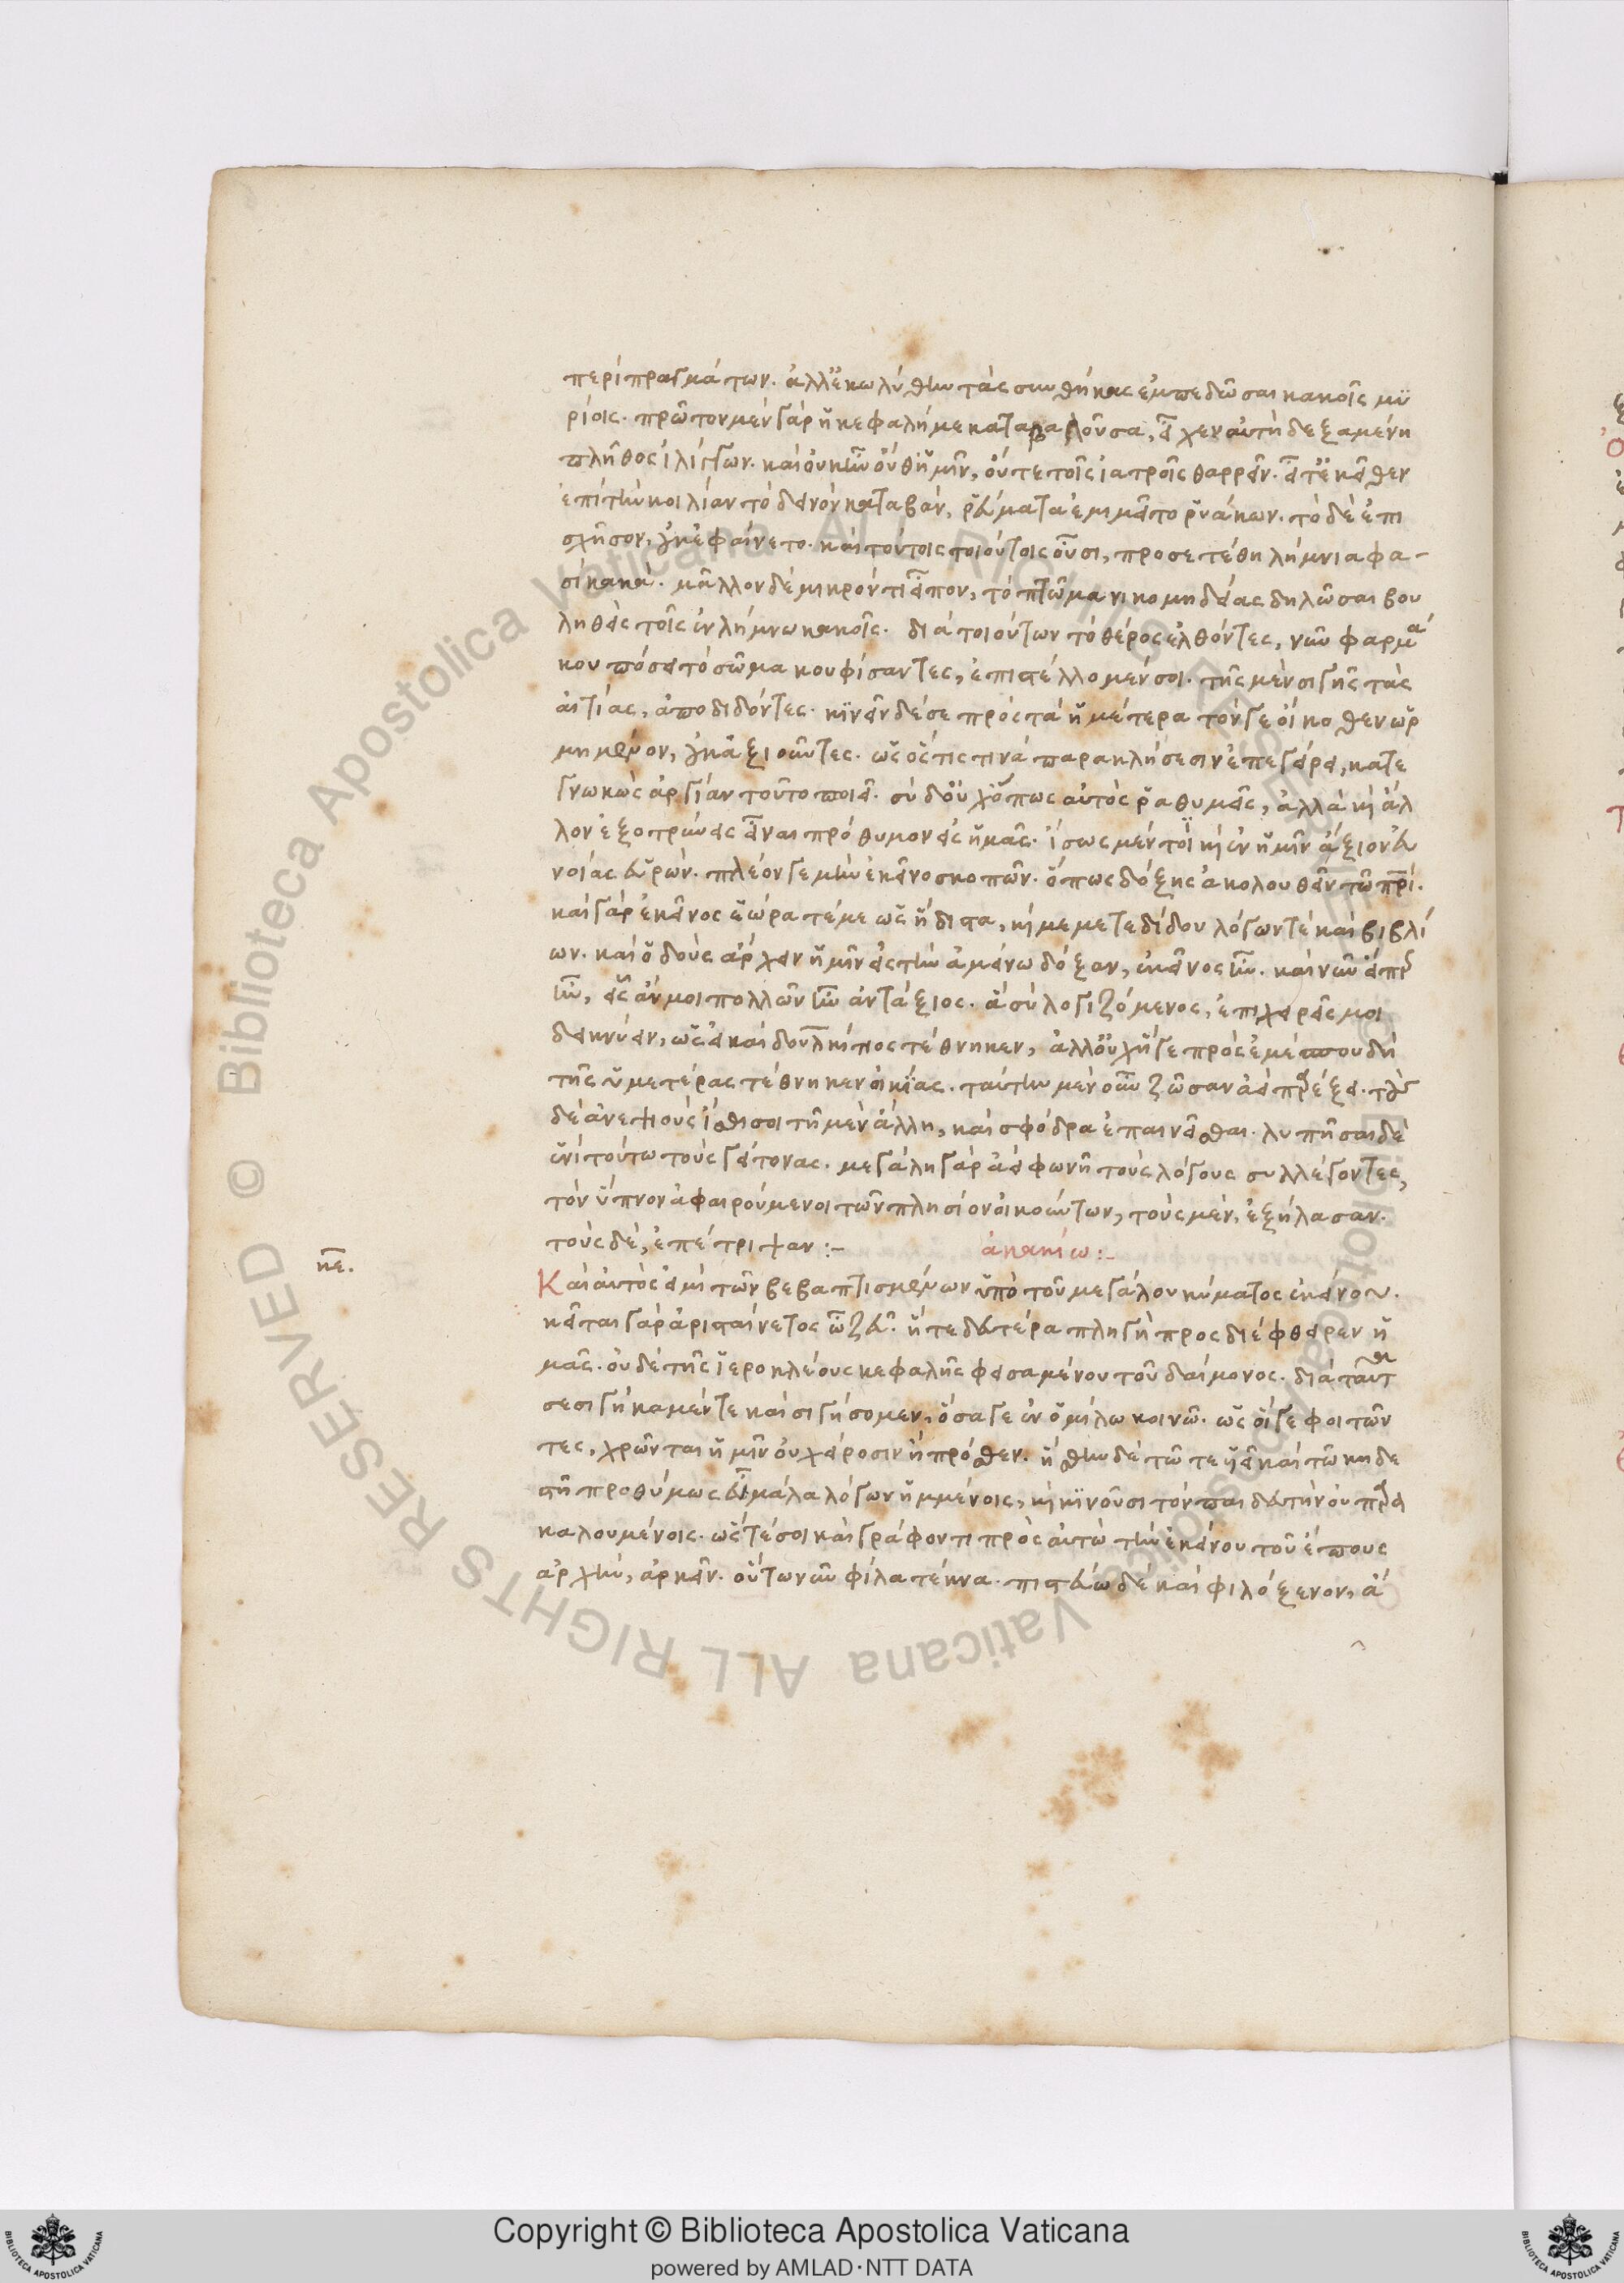 περὶ πραγμάτων. ἀλλ' ἐκωλύθην τὰς συνθήκας ἐμπεδῶσαι κακοῖς μυ
ρίοις. πρῶτον μὲν γὰρ ἡ κεφαλή με καταβαλοῦσα, εἶχεν αὐτὴ δεξαμένη
πλῆθος ἰλίγγων. καὶ οὐκ ἦν οὔθ' ἡμῖν, οὔτε τοῖς ἰατροῖς θαρρεῖν. εἶτ' ἐκεῖθεν
ἐπὶ τὴν κοιλίαν τὸ δεινὸν καταβὰν, ῥεύματα ἐμιμεῖτο ῥυάκων. τὸ δὲ ἐπι
σχῆσον, οὐκ ἐφαίνετο. καὶ τούτοις τοιούτοις οὖσι, προσετέθη λήμνια φα-
σὶ κακά. μᾶλλον δὲ μικρόν τι εἶπον, τὸ πτῶμα νικομηδείας δηλῶσαι βου
ληθεὶς τοῖς ἐν λήμνω κακοῖς. διὰ τοιούτων τὸ θέρος ἐλθόντες, νῦν φαρμά
κου πόσει τὸ σῶμα κουφίσαντες, ἐπιστέλλομέν σοι. τῆς μὲν σιγῆς τὰς
αἰτίας, ἀποδιδόντες. κινεῖν δέ σε πρὸς τὰ ἡμέτερα τόν γε οἴκοθεν ὡρ
μημένον, οὐκ ἀξιοῦντες. ὡς ὅς τις τινὰ παρακλήσεσιν ἐπεγείρει, κατε
γνωκὼς ἀργίαν τοῦτο ποιεῖ. σὺ δ' οὐχ ὅπως αὐτὸς ῥαθυμεῖς, ἀλλὰ κἂν ἄλ
λον ἐξοτρύνεις εἶναι πρόθυμον εἰς ἡμᾶς. ἴσως μέν τοι κἂν ἡμῖν ἄξιον εὐ
νοίας εὑρών. πλέον γε μὴν ἐκεῖνο σκοπῶν. ὅπως δόξης ἀκολουθεῖν τῶ πρὶ.
καὶ γὰρ ἐκεῖνος ἑώρα τέ με ὡς ἥδιστα, καί με μετεδίδου λόγων τὲ καὶ βιβλί
ων. καὶ ὁ δοὺς ἄρχειν ἡμῖν εἰς τὴν ἀμείνω δόξαν, ἐκεῖνος ἦν. καὶ νῦν εἴπερ
ἦν, εἷς ἄν μοι πολλῶν ἦν ἀντάξιος. ἃ σὺ λογιζόμενος, ἐπιχειρεῖς μοι
δεικνύειν, ὡς εἰ καὶ δουλκίτιος τέθνηκεν, ἀλλ' οὐχ ἥ γε πρὸς ἐμὲ σπουδὴ
τῆς ὑμετέρας τέθνηκεν οἰκίας. ταύτην μὲν οὖν ζῶσαν ἀεὶ παρέξει. τοὺς
δὲ ἀνεψιοὺς ἴσθι σοι τῆ μὲν ἄλλη, καὶ σφόδρα ἐπαινεῖσθαι. λυπῆσαι δὲ
ἑνὶ τούτω τοὺς γείτονας. μεγάλη γὰρ ἀεὶ φωνῆ τοὺς λόγους συλλέγοντες,
τὸν ὕπνον ἀφαιρούμενοι τῶν πλησίον οἰκούντων, τοὺς μὲν, ἐξήλασαν.
τοὺς δὲ, ἐπέτριψαν :-
ἀκακίω :-
κε.
Καὶ αὐτὸς εἰμὶ τῶν βεβαπτισμένων ὑπὸ τοῦ μεγάλου κύματος ἐκείνου.
κεῖται γὰρ ἀρισταίνετος ὦ ζεῦ. ἥ τε δευτέρα πληγὴ προς διέφθειρεν ἡ
μᾶς. οὐδὲ τῆς ἱεροκλέους κεφαλῆς φεισαμένου τοῦ δαίμονος. διὰ ταῦτ
σεσιγήκαμέν τε καὶ σιγήσομεν, ὅσα γε ἐν ὁμίλω κοινῶ. ὡς οἵ γε φοιτῶν
τες, χρῶνται ἡμῖν οὐ χείροσιν ἢ πρόσθεν. ἥσθην δὲ τῶ τε υἱεῖ καὶ τῶ κηδε
στῆ προθύμως εὖ μάλα λόγων ἡμμένοις, καὶ κινοῦσι τὸν παιδευτὴν οὐ παρα
καλουμένοις. ὥς τέ σοι καὶ γράφοντι πρὸς αὐτὼ τὴν ἐκείνου τοῦ ἔπους
ἀρχὴν, ἀρκεῖν. οὕτω νῦν φίλα τέκνα. πιστεύω δὲ καὶ φιλόξενον, ἀ